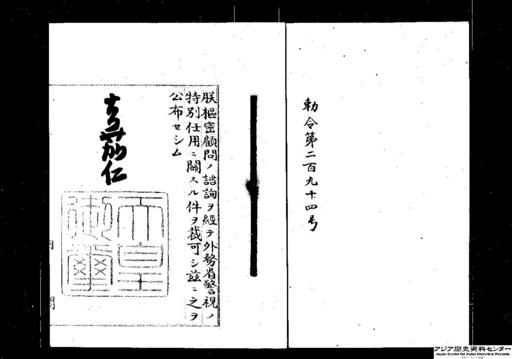 勅令第二百九十四号
朕樞密顧問ノ諮詢ヲ經テ外務省警視ノ
特別任用ニ關スル件ヲ裁可シ茲ニ之ヲ
公布セシム
嘉仁
天皇
御璽
内閣
アジア歴史資料センター
Japan Center for Asian Historical Records